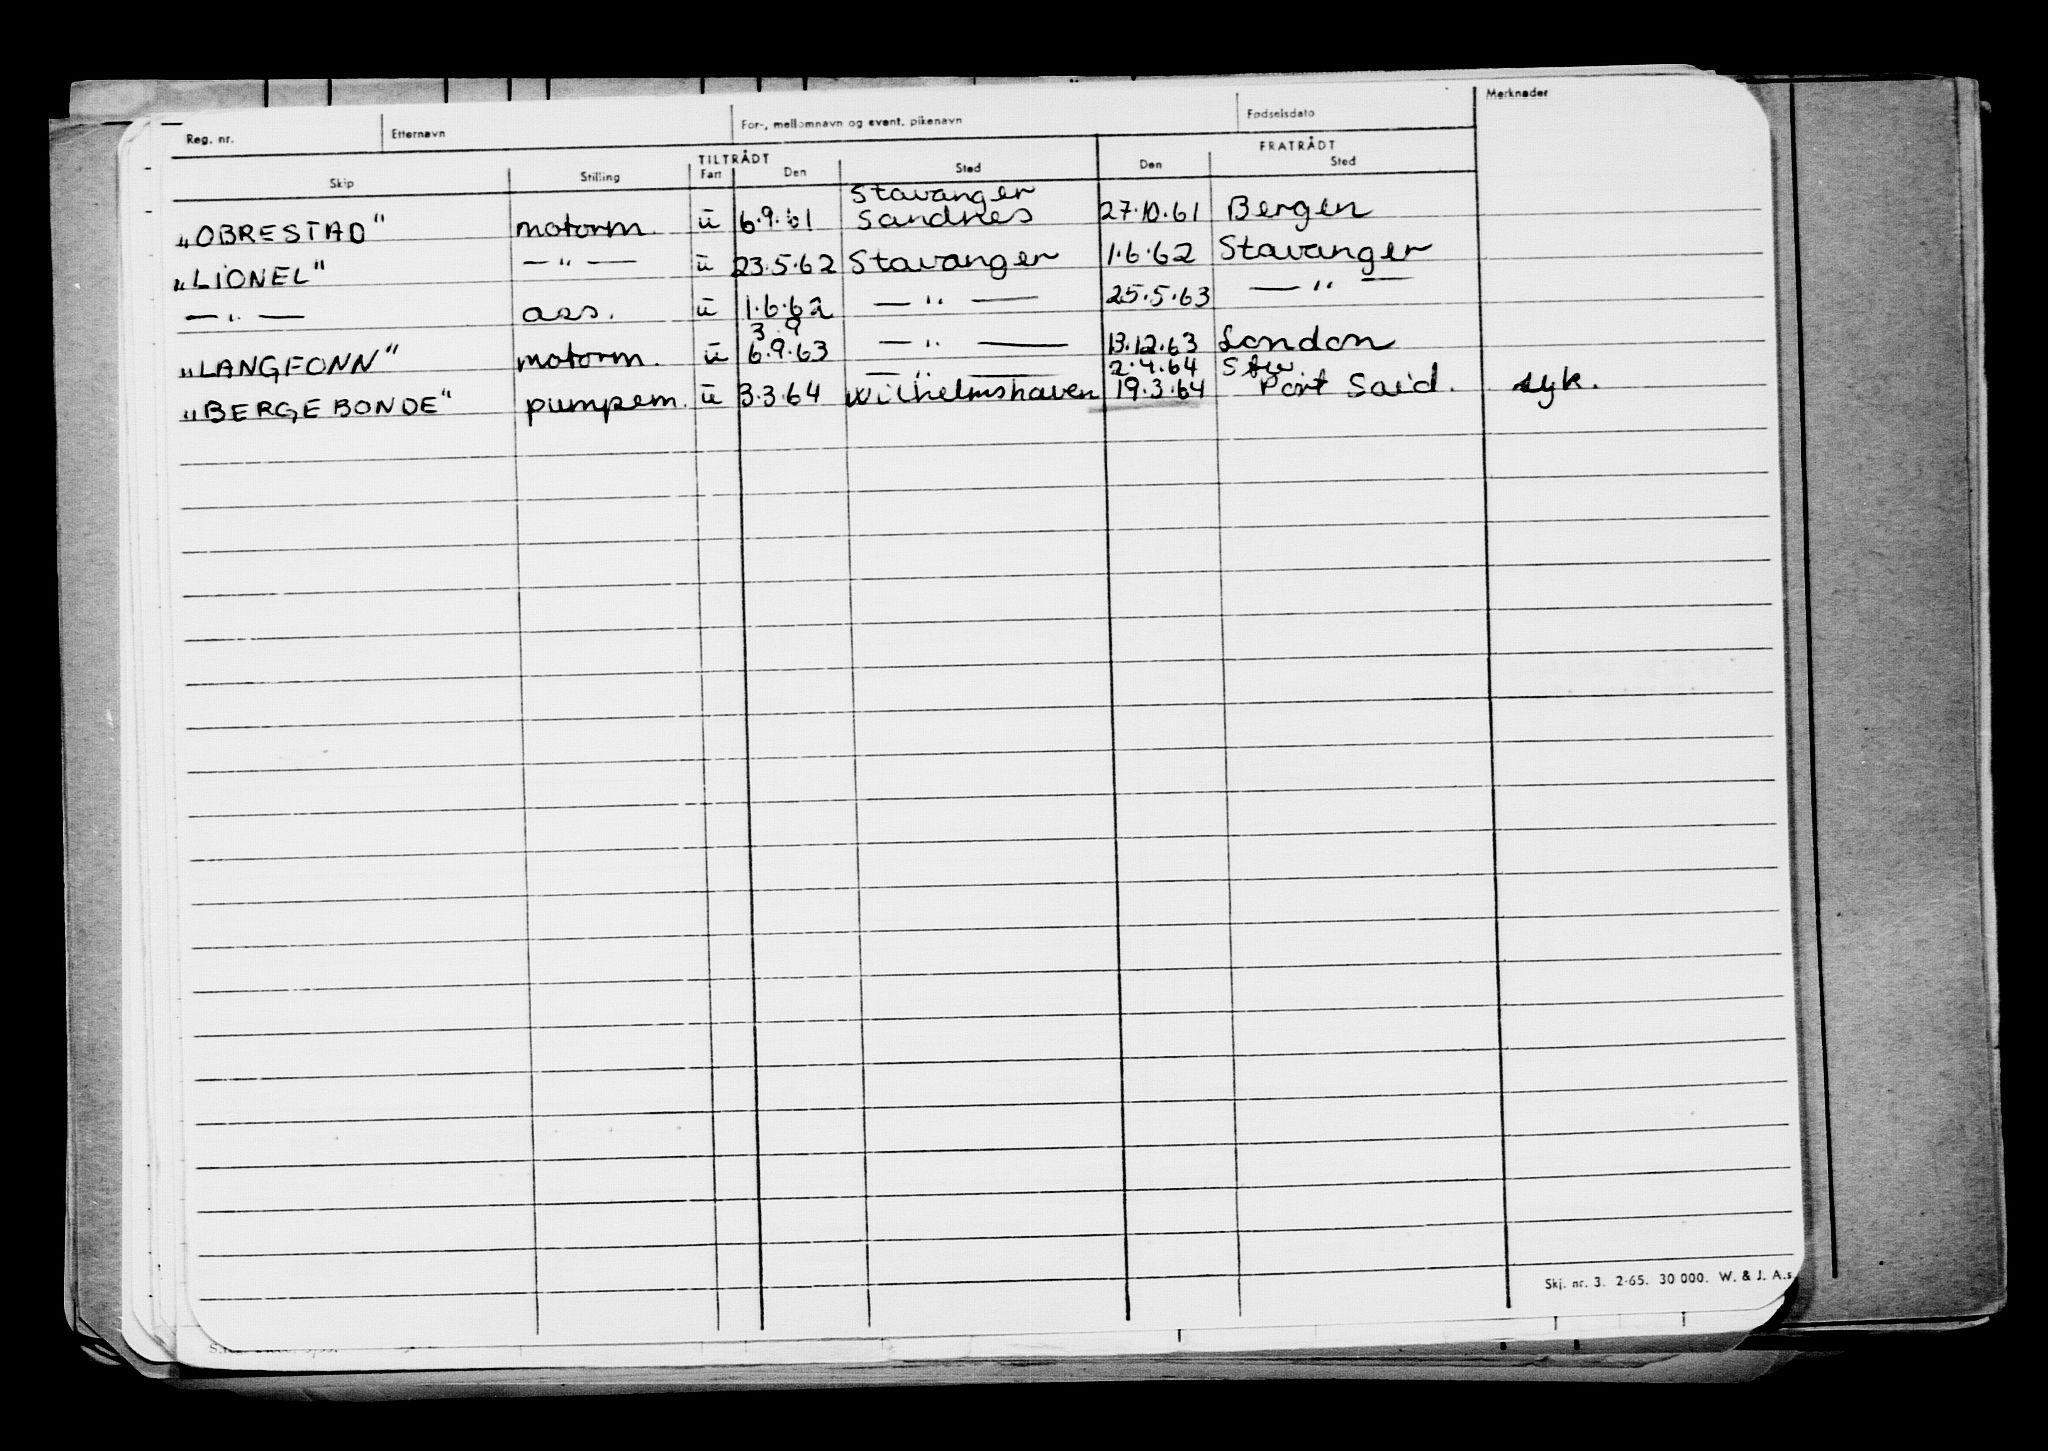 Reg. nr. Etternavn For-, mellomnavn og event. pikenavn Fødselsdato Merknader
TILTRÅDT FRATRÅDT
Skip Stilling Fart Den Sted Den Sted
Stavanger
„OBRESTAD" motorm. u 6.9.61 Sandnes 27.10.61 Bergen
„LIONEL" — " — u 23.5.62 Stavanger 1.6.62 Stavanger
— " — ass. u 1.6.62 — " — 25.5.63 — " —
3.9
„LANGFONN" motorm. u 6.9.63 — " — 13.12.63 London
— " — 2.4.64 Stv
„BERGEBONDE" pumpem. u 3.3.64 Wilhelmshaven 19.3.64 Port Said. syk.
Skj. nr. 3. 2-65. 30 000. W. & J. A.s